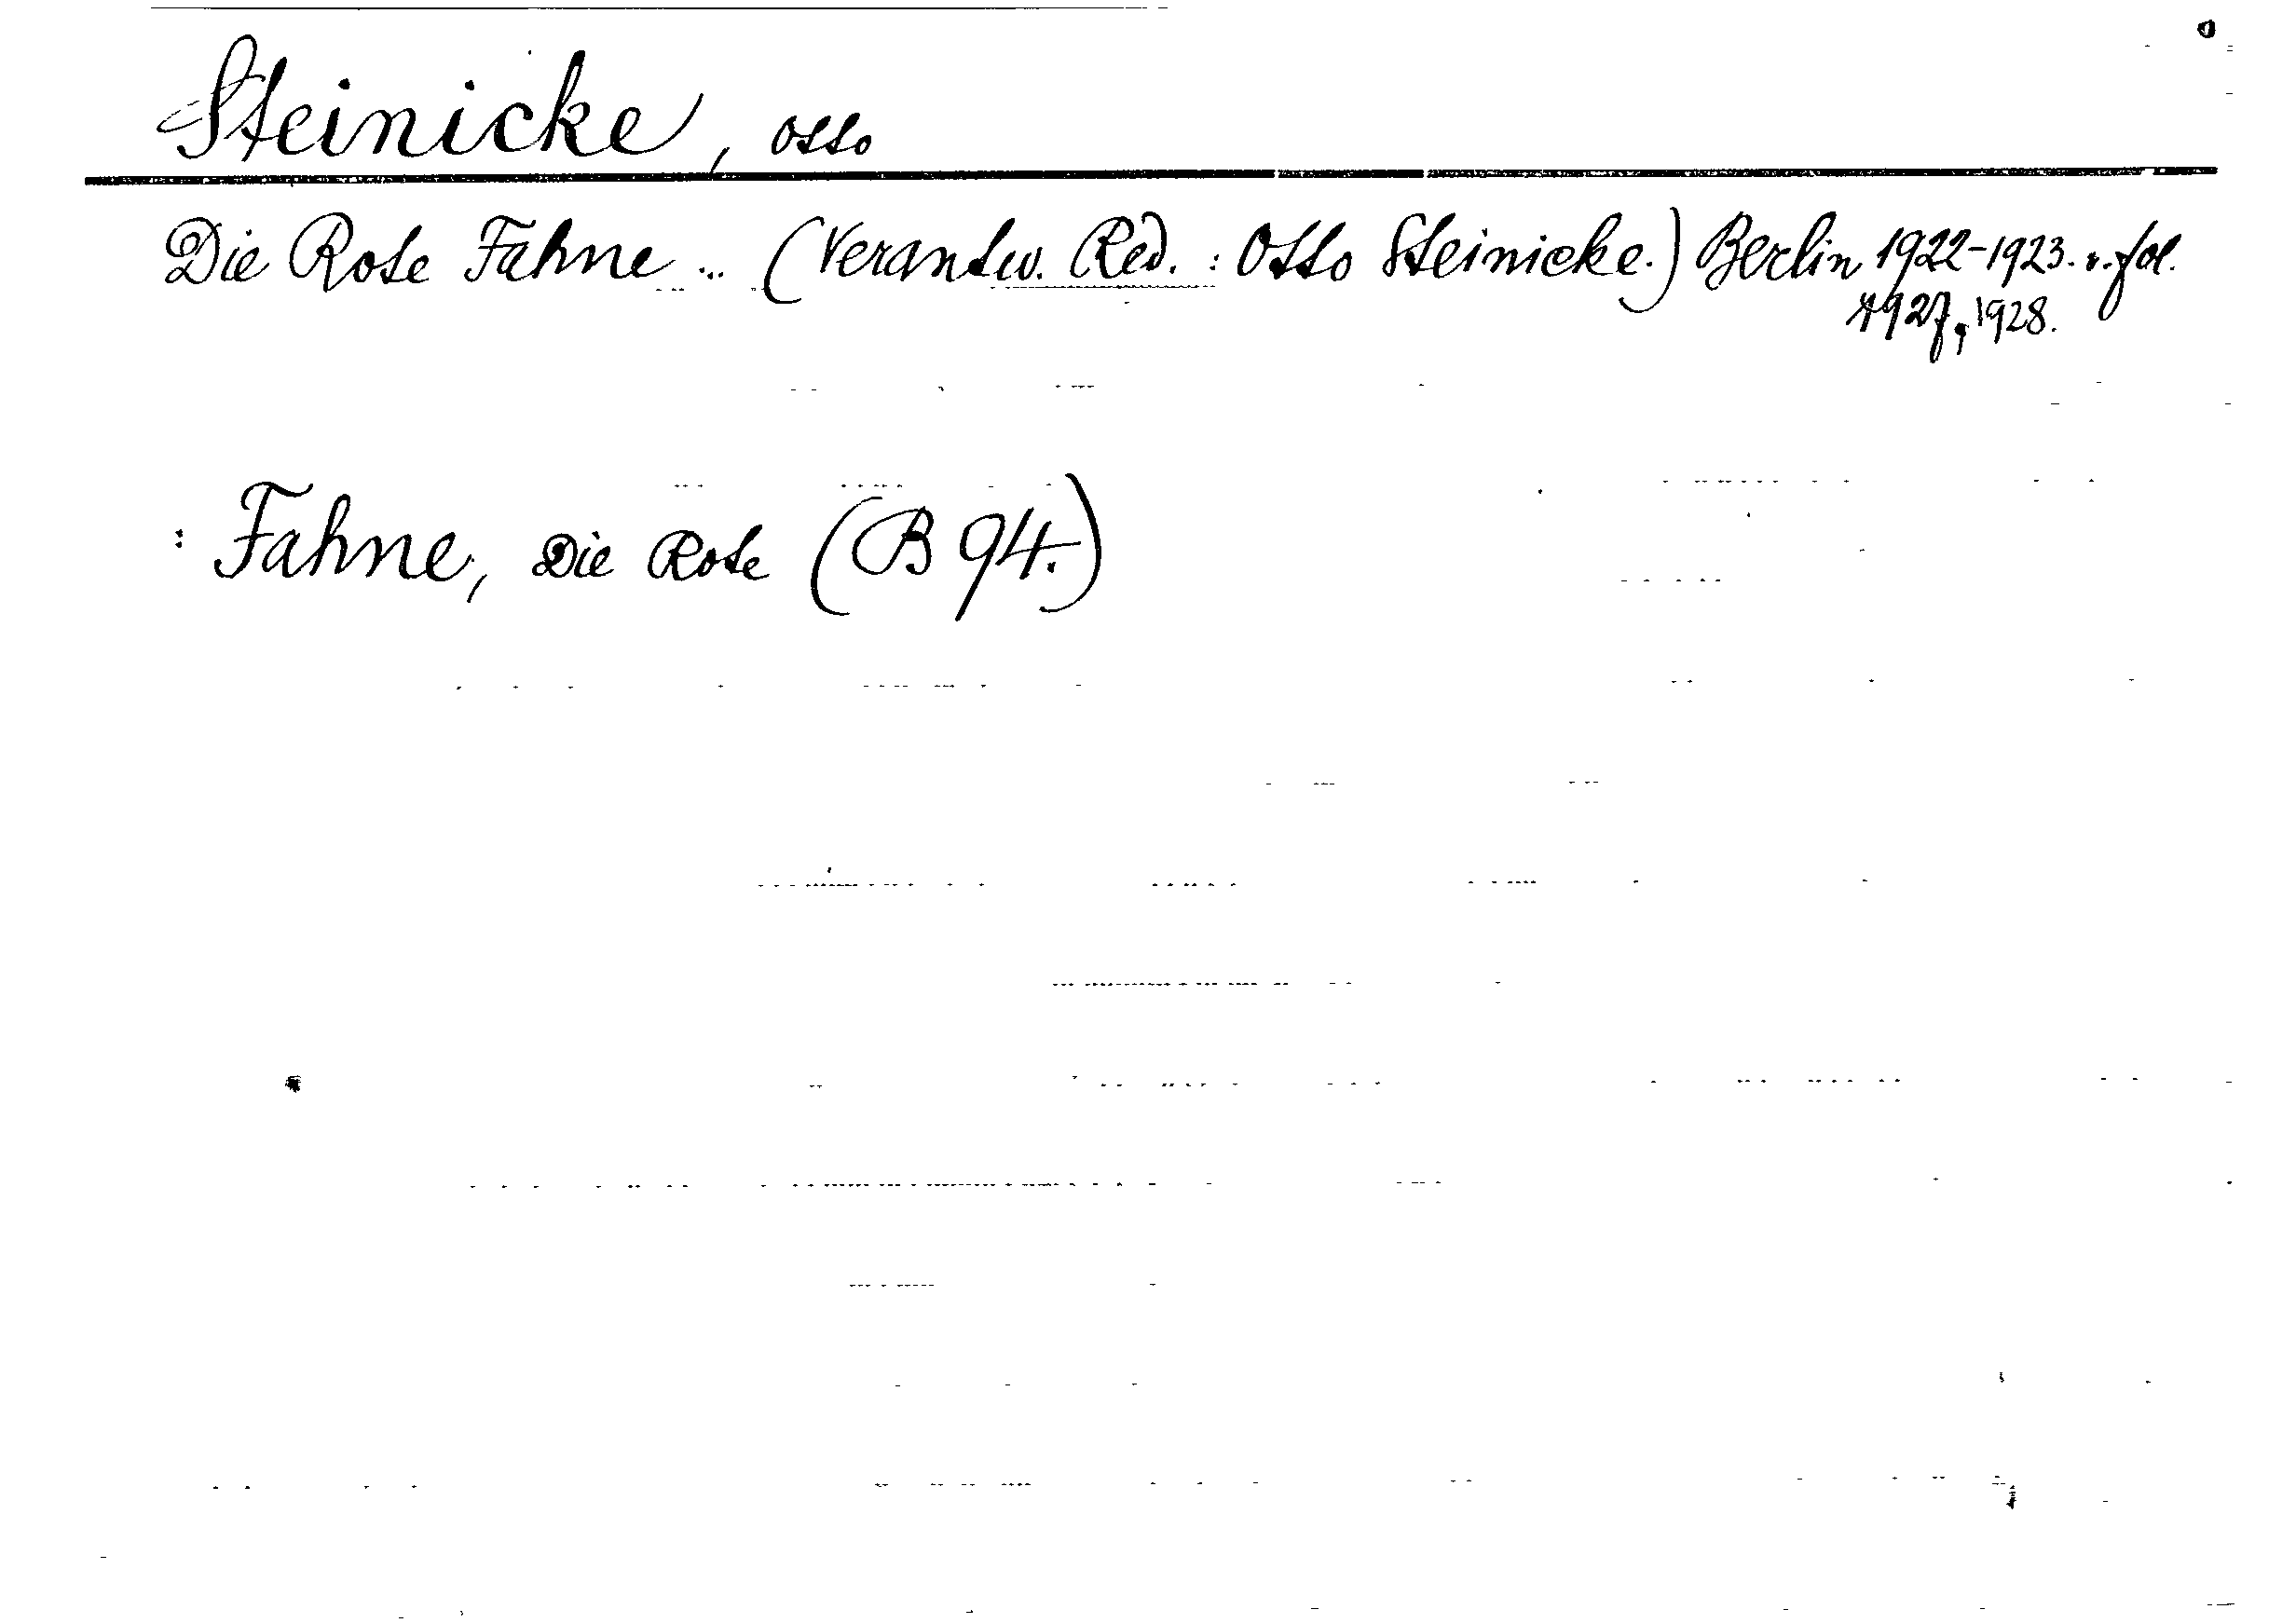 Steinicke, Otto
Die Rote Fahne ... (Verantw. Red. : Otto Steinicke.) Berlin 1922-1923. v. fol.
1927, 1928.
: Fahne, Die Rote (B 94.)